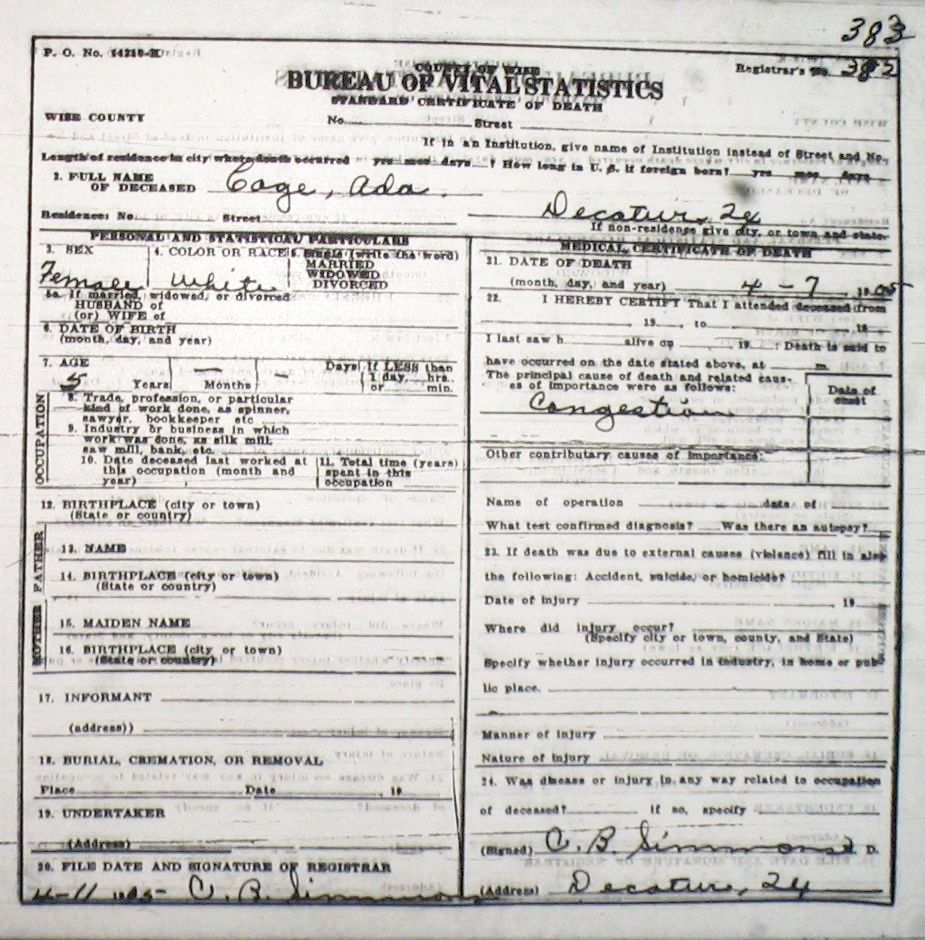 383
P. O. No. 14210-H
Registrar's No. 382
COUNTY OF WISE
BUREAU OF VITAL STATISTICS
STANDARD CERTIFICATE OF DEATH
WISE COUNTY
No. Street
If in an Institution, give name of Institution instead of Street and No.
Length of residence in city where death occurred yrs mos days ? How long in U. S. if foreign born? yrs mos days
2. FULL NAME OF DECEASED Cage, Ada
Residence: No. Street Decatur,
If non-residence give city, or town and state.
PERSONAL AND STATISTICAL PARTICULARS
3. SEX
Female
4. COLOR OR RACE
White
Single (write the word)
MARRIED
WIDOWED
DIVORCED
5a. If married, widowed, or divorced
HUSBAND of
(or) WIFE of
6. DATE OF BIRTH
(month, day, and year)
7. AGE
5 Years — Months Days If LESS than
1 day, hrs.
or min.
OCCUPATION
8. Trade, profession, or particular
kind of work done, as spinner,
sawyer, bookkeeper etc
9. Industry or business in which
work was done, as silk mill,
saw mill, bank, etc.
10. Date deceased last worked at
this occupation (month and
year)
11. Total time (years)
spent in this
occupation
12. BIRTHPLACE (city or town)
(State or country)
FATHER
13. NAME
14. BIRTHPLACE (city or town)
(State or country)
MOTHER
15. MAIDEN NAME
16. BIRTHPLACE (city or town)
(State or country)
17. INFORMANT
(address))
18. BURIAL, CREMATION, OR REMOVAL
Place Date 19
19. UNDERTAKER
(Address)
20. FILE DATE AND SIGNATURE OF REGISTRAR
4-11 1905 C. B. Simmons
MEDICAL CERTIFICATE OF DEATH
21. DATE OF DEATH
(month, day, and year) 4-7, 1905
22. I HEREBY CERTIFY That I attended deceased from
19 , to 19
I last saw h alive on , 19 . ; Death is said to
have occurred on the date stated above, at m.
The principal cause of death and related causes of importance were as follows:
Date of onset
Congestion
Other contributary causes of importance:
Name of operation date of
What test confirmed diagnosis? Was there an autopsy?
23. If death was due to external causes (violence) fill in also
the following: Accident, suicide, or homicide?
Date of injury 19
Where did injury occur?
(Specify city or town, county, and State)
Specify whether injury occurred in industry, in home or pub
lic place.
Manner of injury
Nature of injury
24. Was disease or injury in any way related to occupation
of deceased? if so, specify
(Signed) C. B. Simmons D.
(Address) Decatur,